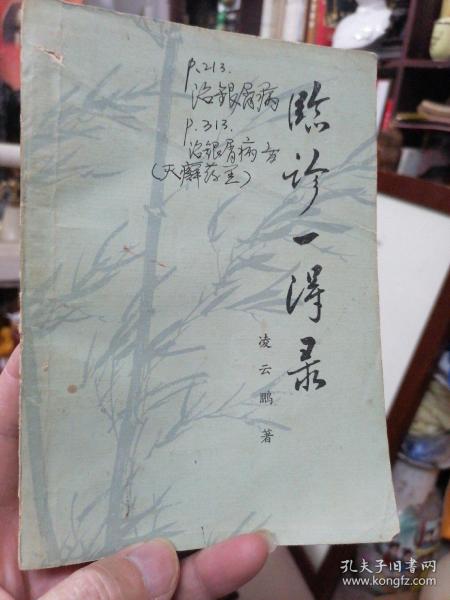 p.213.
治银屑病
p.313.
治银屑病方
临诊一得录
凌云鹏 著
孔夫子旧书网
www.kongfz.com